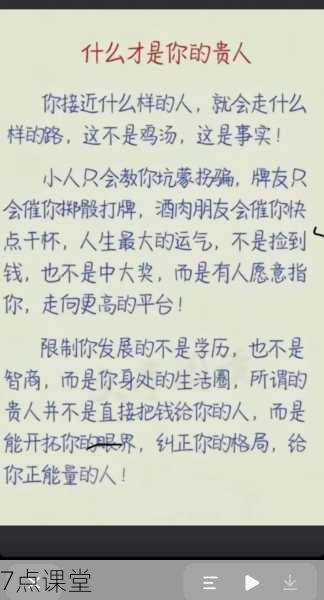 什么才是你的贵人
你接近什么样的人，就会走什么
样的路，这不是鸡汤，这是事实！
小人只会教你坑蒙拐骗，牌友只
会催你掷骰打牌，酒肉朋友会催你快
点干杯，人生最大的运气，不是捡到
钱，也不是中大奖，而是有人愿意指
你，走向更高的平台！
限制你发展的不是学历，也不是
智商，而是你身处的生活圈，所谓的
贵人并不是直接把钱给你的人，而是
能开拓你的眼界，纠正你的格局，给
你正能量的人！
7点课堂